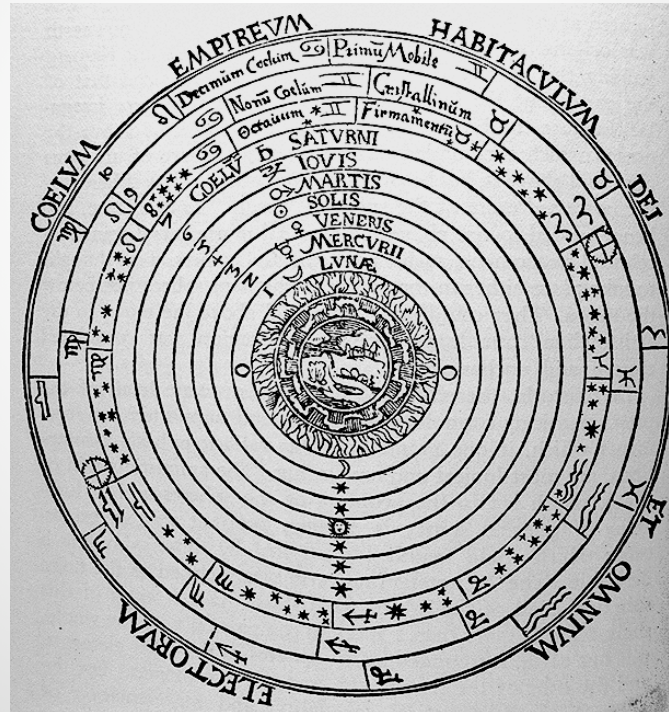 COELVM EMPIREVM HABITACVLVM DEI ET OMNIVM ELECTORVM
10 Decimum Coelum Primũ Mobile
9 Nonũ Coelũm Cristallinũm
8 Octauum Firmamentũ
7 COELV SATURNI
6 IOVIS
5 MARTIS
4 SOLIS
3 VENERIS
2 MERCVRII
1 LVNÆ